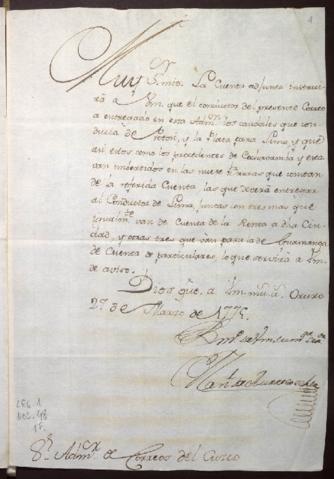 1
Muy S.r mio. La Cuenta adjunta instrui
rà a Vm. que el conductor del presente Correo
a entregado en esta Adm.on los caudales que con
ducia de Potosi, y la Plata para Lima, y que
asi estos como los procedentes de
van imbertidos en las nueve Barras que constan
de la referida Cuenta, las que deverà entregar
el Conductor de Lima, juntas con tres mas que
van de Cuenta de la Renta a dha Ciu
dad, y otras tres que van para
de Cuenta de particulares, lo que servirà a Vm.
de aviso.
Dios gue. a Vm. m.s a.s Oruro
27 de Marzo de 1775
LEG. 1
DOC. 48
1f.
S.r Adm.or de Correos del Cuzco